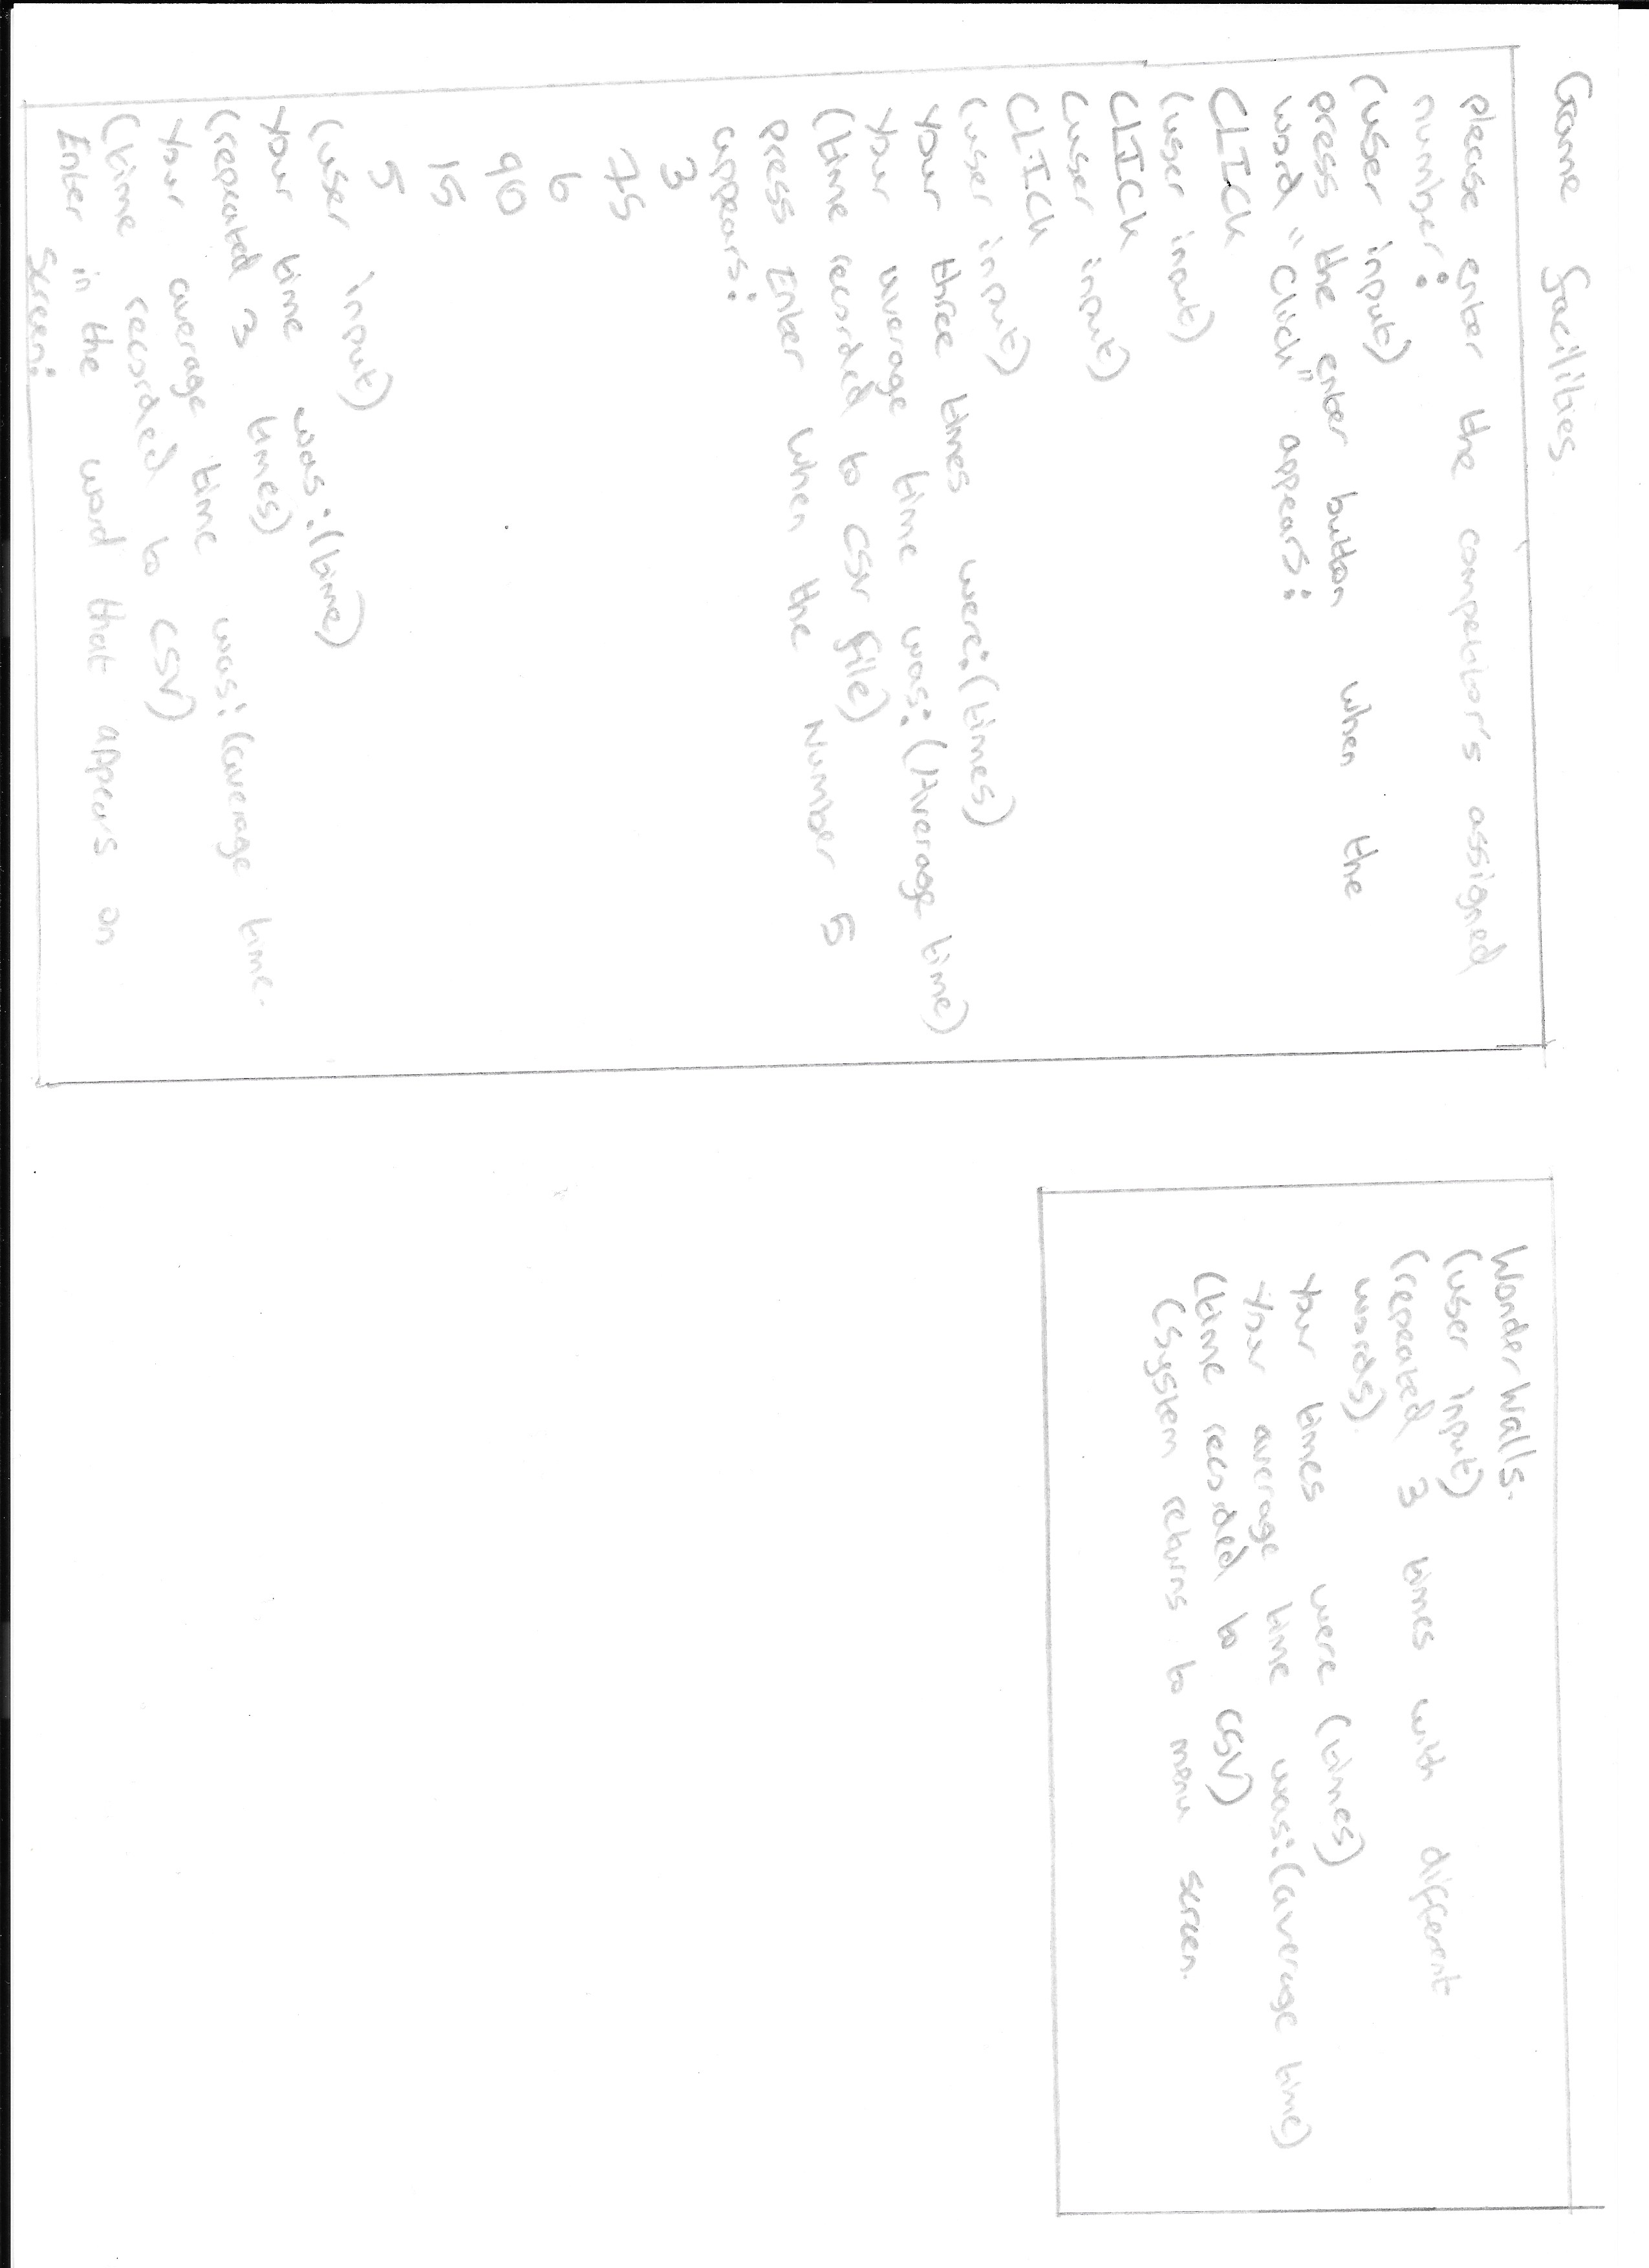 Game facilities.
please enter the competitor's assigned
number:
(user input)
press the enter button when the
word "Click" appears:
CLICK
(user input)
CLICK
(user input)
CLICK
(user input)
your three times were: (times)
your average time was: (Average time)
(time recorded to CSV file)
press Enter when the Number 5
appears:
3
75
6
90
15
5
(user input)
your time was: (time)
(repeated 3 times)
your average time was: (average time.
(time recorded to CSV)
Enter in the word that appears on
screen:
WonderWalls.
(user input)
(repeated 3 times with different
words)
your times were (times)
your average time was: (average time)
(time recorded to CSV)
(System returns to menu screen.